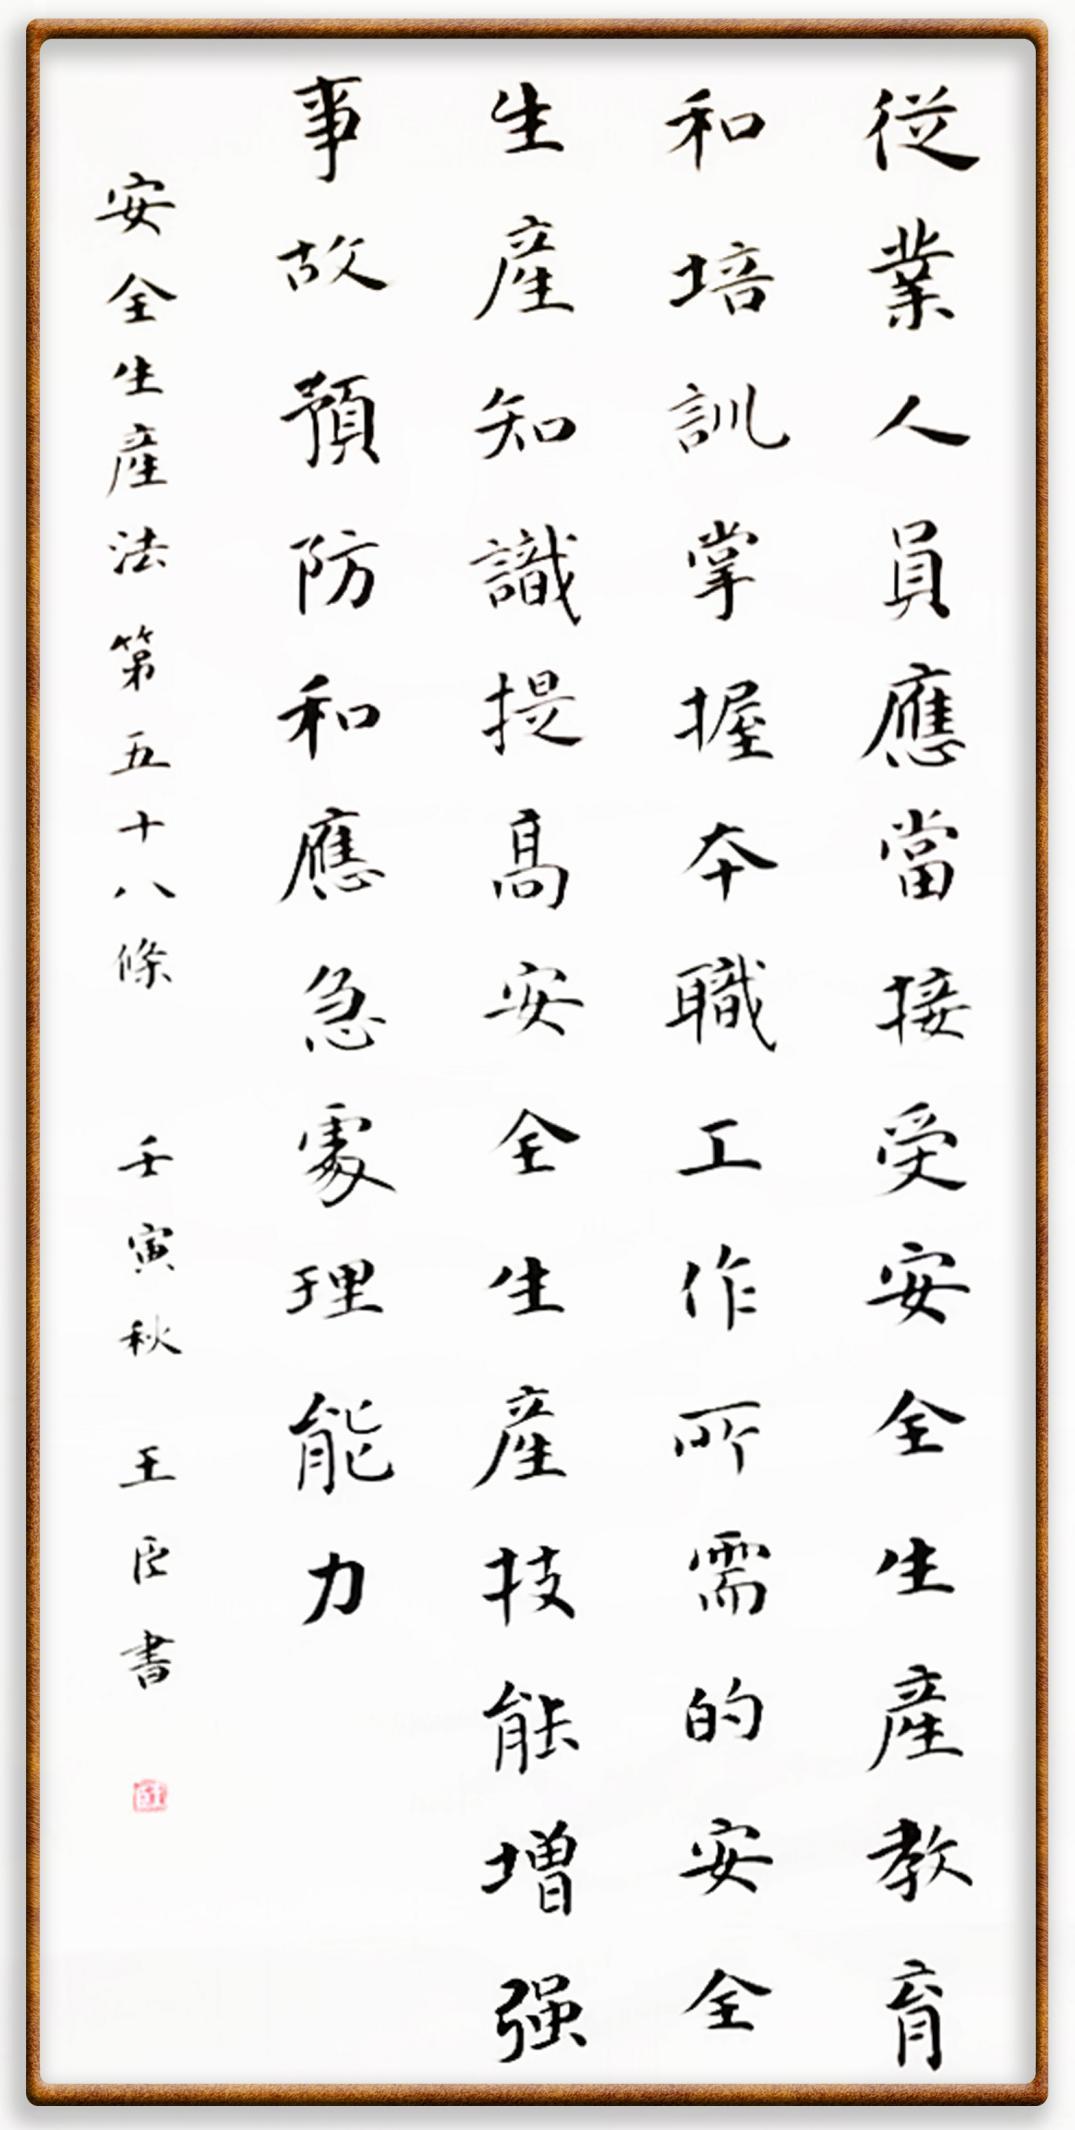 従業人員應當接受安全生産教育
和培訓掌握本職工作所需的安全
生産知識提高安全生産技能增强
事故預防和應急處理能力
安全生産法第五十八條 壬寅秋 王臣書